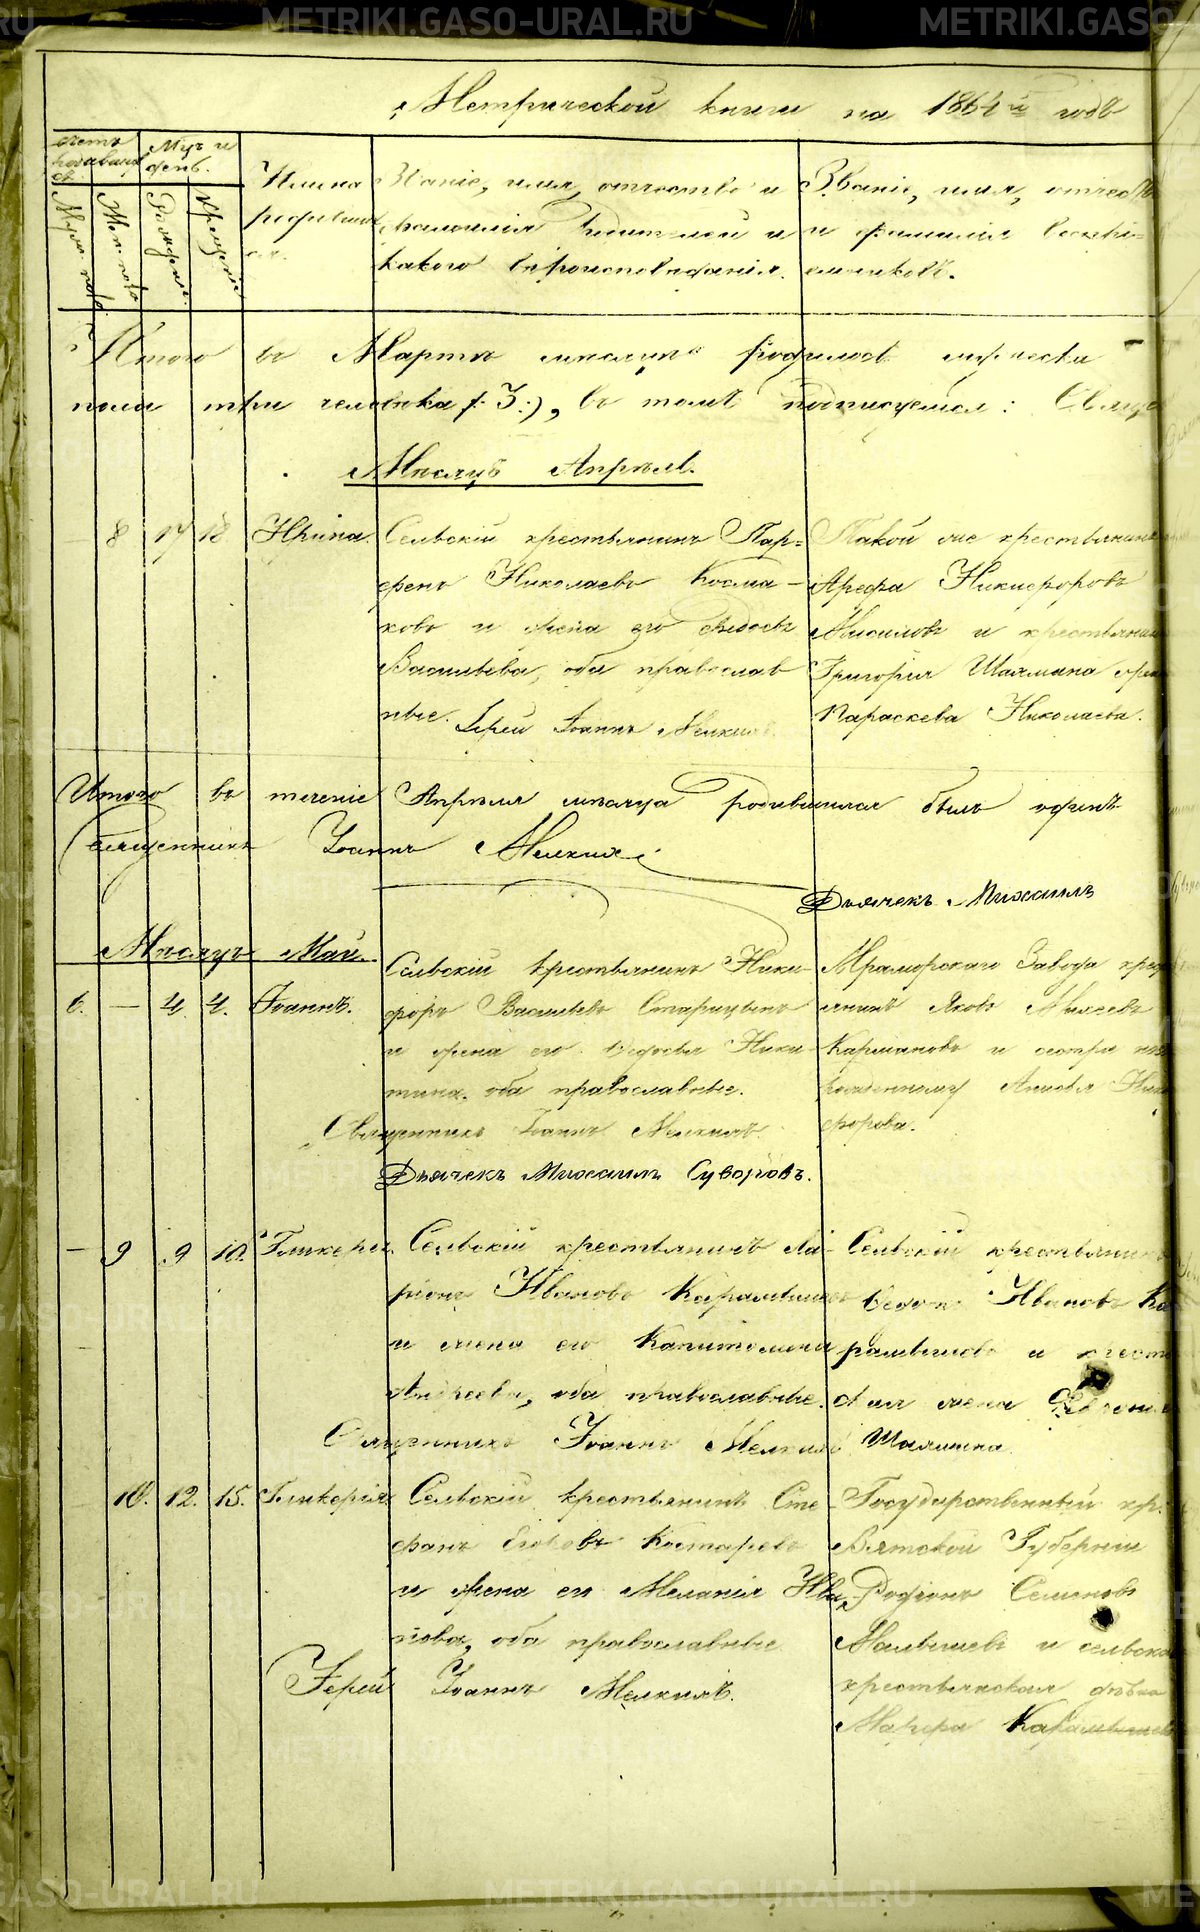 METRIKI.GASO-URAL.RU
Метрической книги на 1864й годъ
Счетъ родившихся
Мѣц и день.
Муж. пола
Жен. пола
Рожденія.
Крещенія
Имена родившихся.
Званіе, имя, отчество и
фамилія родителей и
какого вѣроисповѣданія.
Званіе, имя, отчество
и фамилія воспріемниковъ.
Итого въ Мартѣ мѣсяцѣ родилось мужеска
пола три человѣка /: 3 :), въ томъ подписуемся:
Мѣсяцъ Апрѣль.
8 17 18 Ирина.
Сельскій крестьянинъ Пар=
фенъ Николаевъ Косма-
ковъ и жена его Ѳедосья
Васильева, оба православ
ные. Іерей Іоаннъ Мелкихъ
Такой же крестьянинъ
Арефа Никифоровъ
и крестьянина
Григорія Шалмина жена
Параскева Николаева.
Итого въ теченіе Апрѣля мѣсяца родившихся былъ одинъ
Священникъ Іоаннъ Мелкихъ
Дьячекъ Михаилъ
Мѣсяцъ Май.
6. — 4. 4. Іоаннъ.
Сельскій крестьянинъ Ники-
форъ Васильевъ Старицынъ
и жена его Ѳедосья Ники-
тина, оба православные.
Священникъ Іоаннъ Мелкихъ
Дьячекъ Михаилъ Суворовъ.
Мраморскаго Завода
Яковъ
Кармановъ и сестра
рожденному
форова.
— 9 9 10. Гликерія.
Сельскій крестьянинъ Ла-
ріонъ Ивановъ Карамышевъ
и жена его Капитолина
Андреева, оба православные.
Священникъ Іоаннъ Мелкихъ
Сельскій крестьянинъ
Ивановъ Ка
рамышевъ и
жена
Шалмина
10. 12. 15. Гликерія
Сельскій крестьянинъ Сте
фанъ Костаревъ
и жена его Меланія Ива
нова, оба православные
Іерей Іоаннъ Мелкихъ.
Государственный кр.
Вятской Губерніи
Родіонъ Семеновъ
Малышевъ и сельска
крестьянская дѣвка
Марѳа Карамышева
METRIKI.GASO-URAL.RU